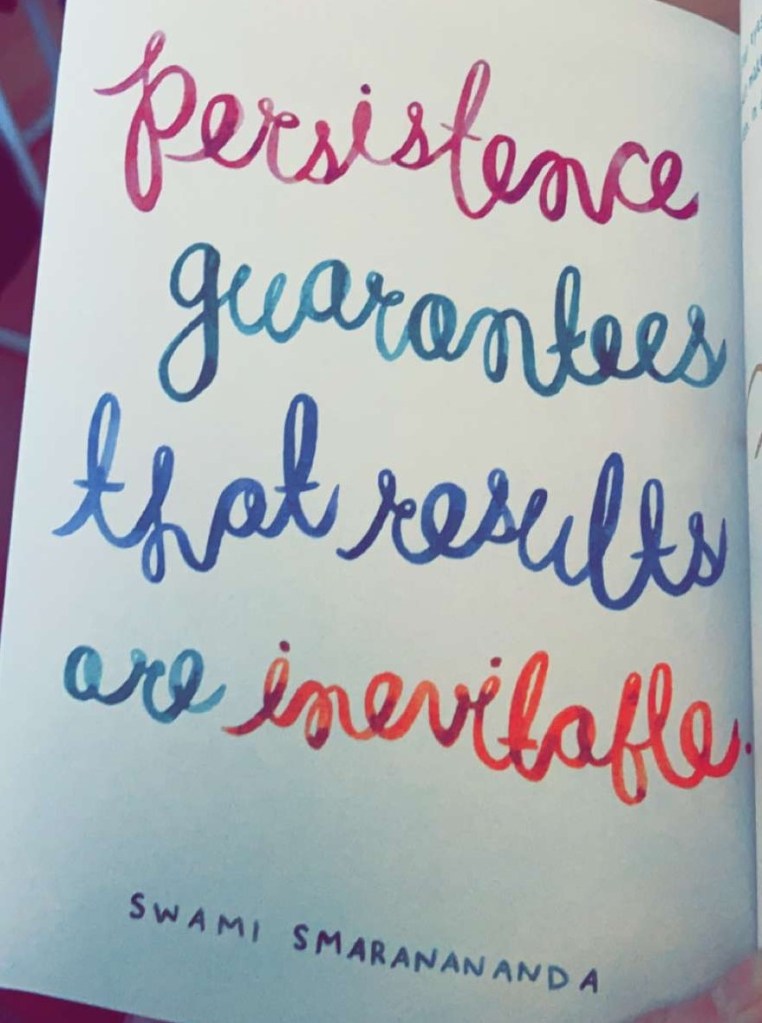 persistence
guarantees
that results
are inevitable.
SWAMI SMARANANANDA